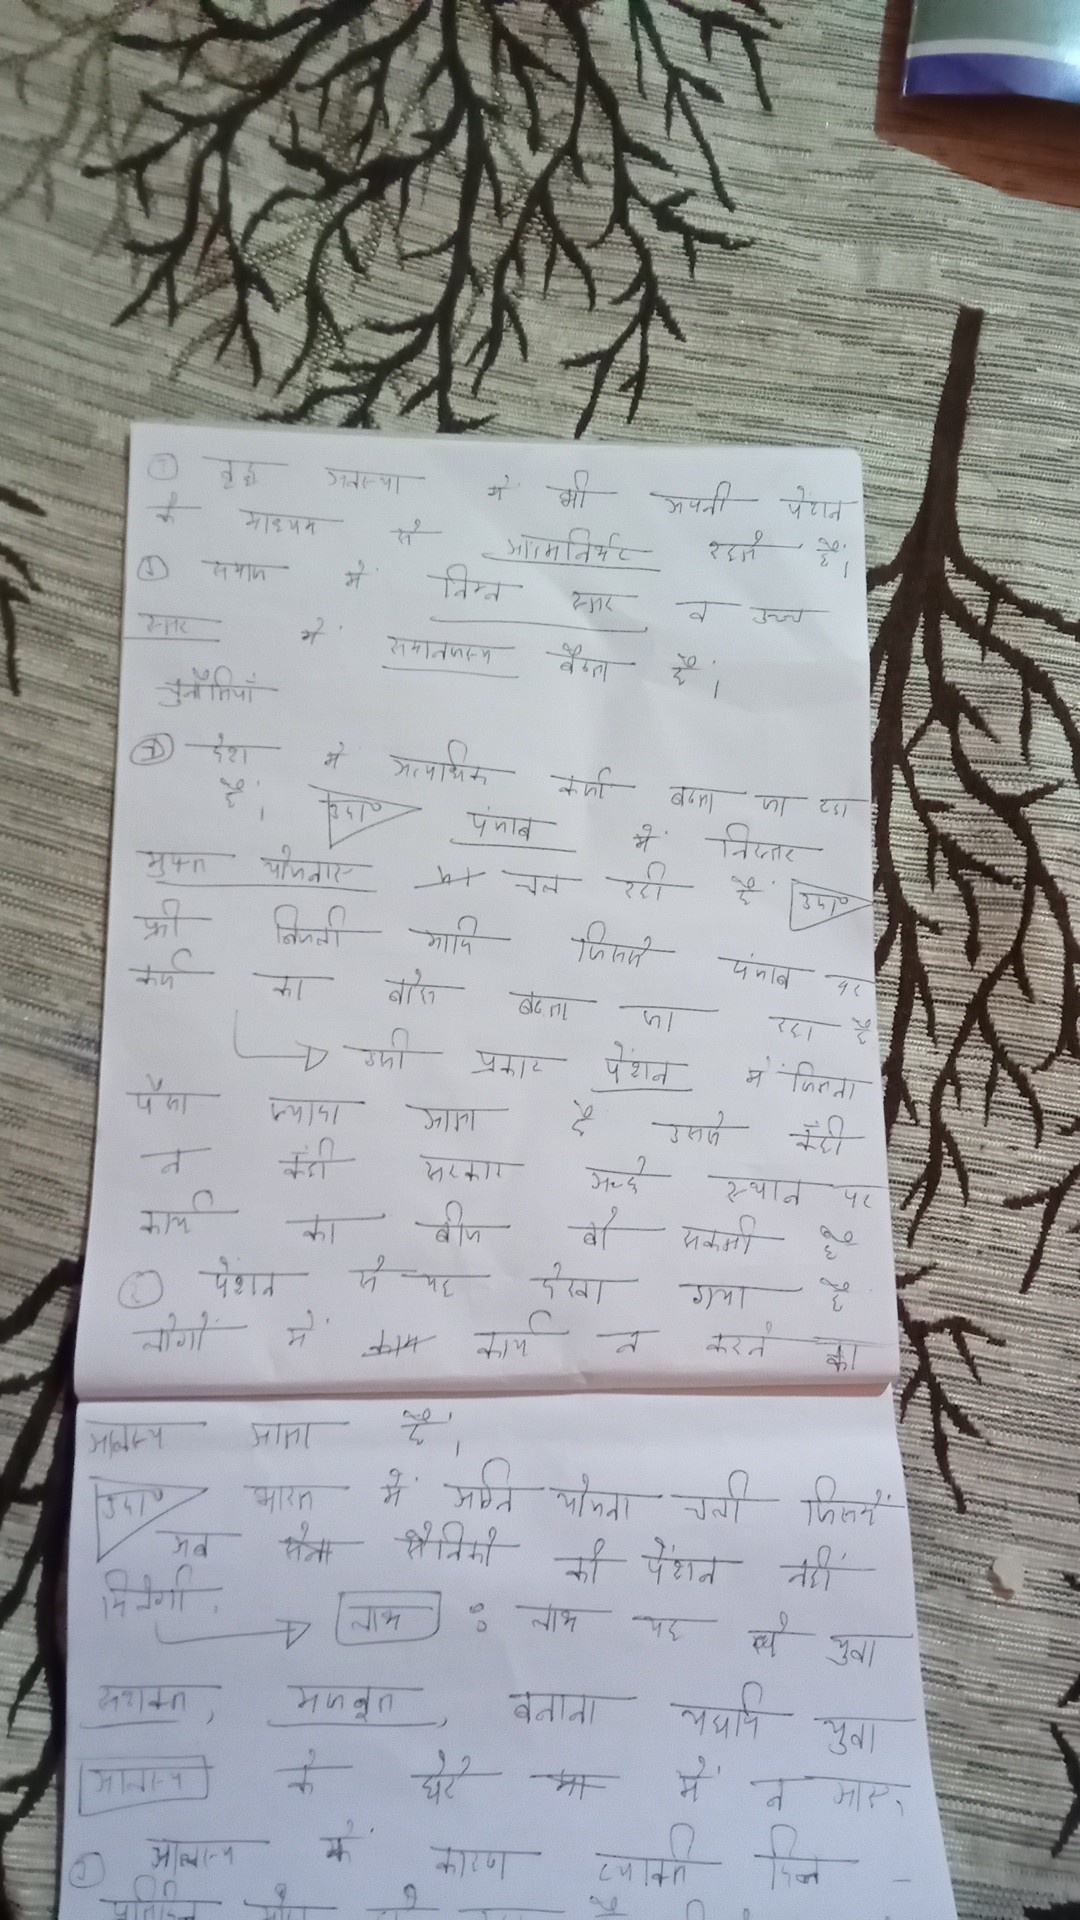 ① वृद्ध अवस्था में भी अपनी पेंशन
के माध्यम से आत्मनिर्भर रहते हैं।
② समाज में निम्न स्तर व उच्च
स्तर में सामानजस्य बैठता है।
चुनौतियाँ
① देश में अत्याधिक कर्जा बढता जा रहा
है। उदा० पंजाब में निरन्तर
मुफ्त योजनाए चल रही हैं उदा०
फ्री बिजली आदि जिससे पंजाब पर
कर्ज का बोझ बढता जा रहा है
उसी प्रकार पेंशन में जितना
पैसा ज्यादा जाता है उससे कँही
न कँही सरकार अच्छे स्थान पर
कार्य का बीज बो सकती है
② पेंशन से यह देखा गया है
लोगों में कार्य न करने का
आलस्य आता है।
उदा० भारत में अग्नि योजना चली जिसमें
अब सैनिको को पेंशन नहीं
मिलेगी।
लाभ : लाभ यह से युवा
सशक्त, मजबूत, बनाना यद्यपि युवा
आलस्य के घेरे में न आए,
आलस्य के कारण व्यक्ति दिन -
प्रतिदिन